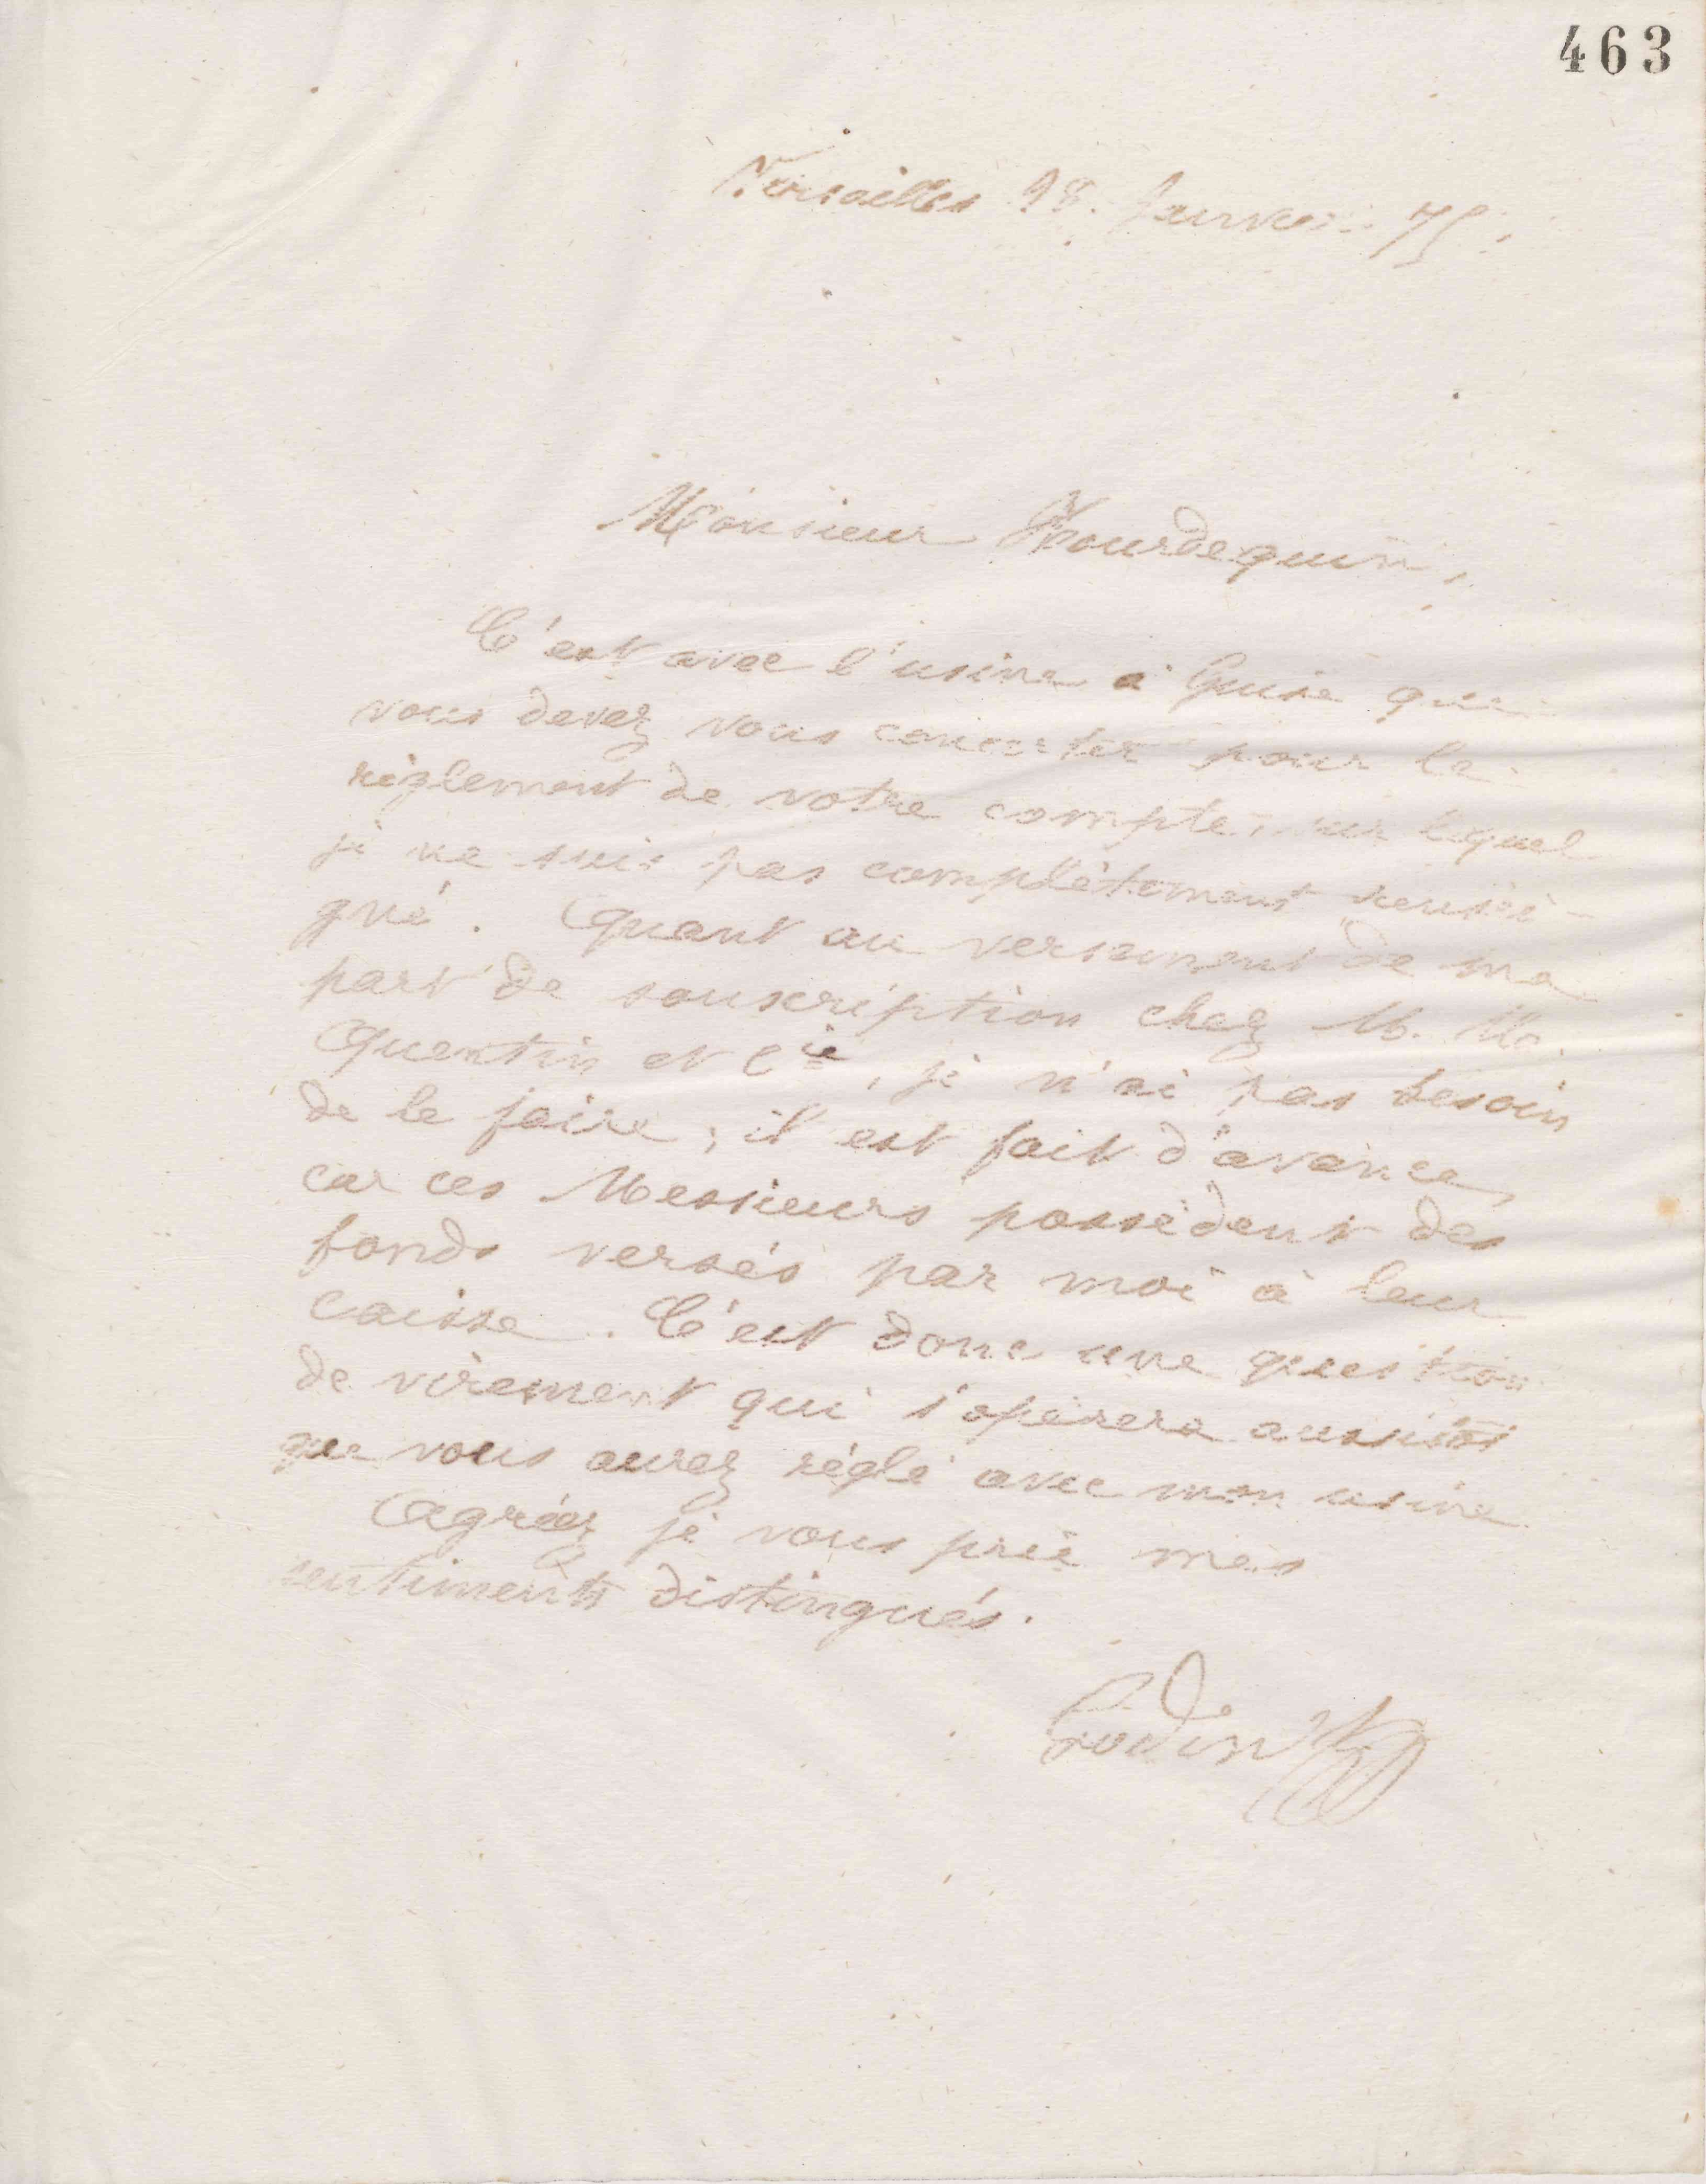 463
Versailles 18 Janvier 75.
Monsieur Bourdequin,
C'est avec l'usine à Guise que
vous devez vous concerter pour le
règlement de votre compte, sur lequel
je ne suis pas complètement rensei-
gné. Quant au versement de ma
part de souscription chez M. M.
Quentin et Cie, je n'ai pas besoin
de le faire ; il est fait d'avance,
car ces Messieurs possèdent des
fonds versés par moi à leur
caisse. C'est donc une question
de virement qui s'opérera aussitôt
que vous aurez réglé avec mon usine.
Agréez je vous prie mes
sentiments distingués.
Godin